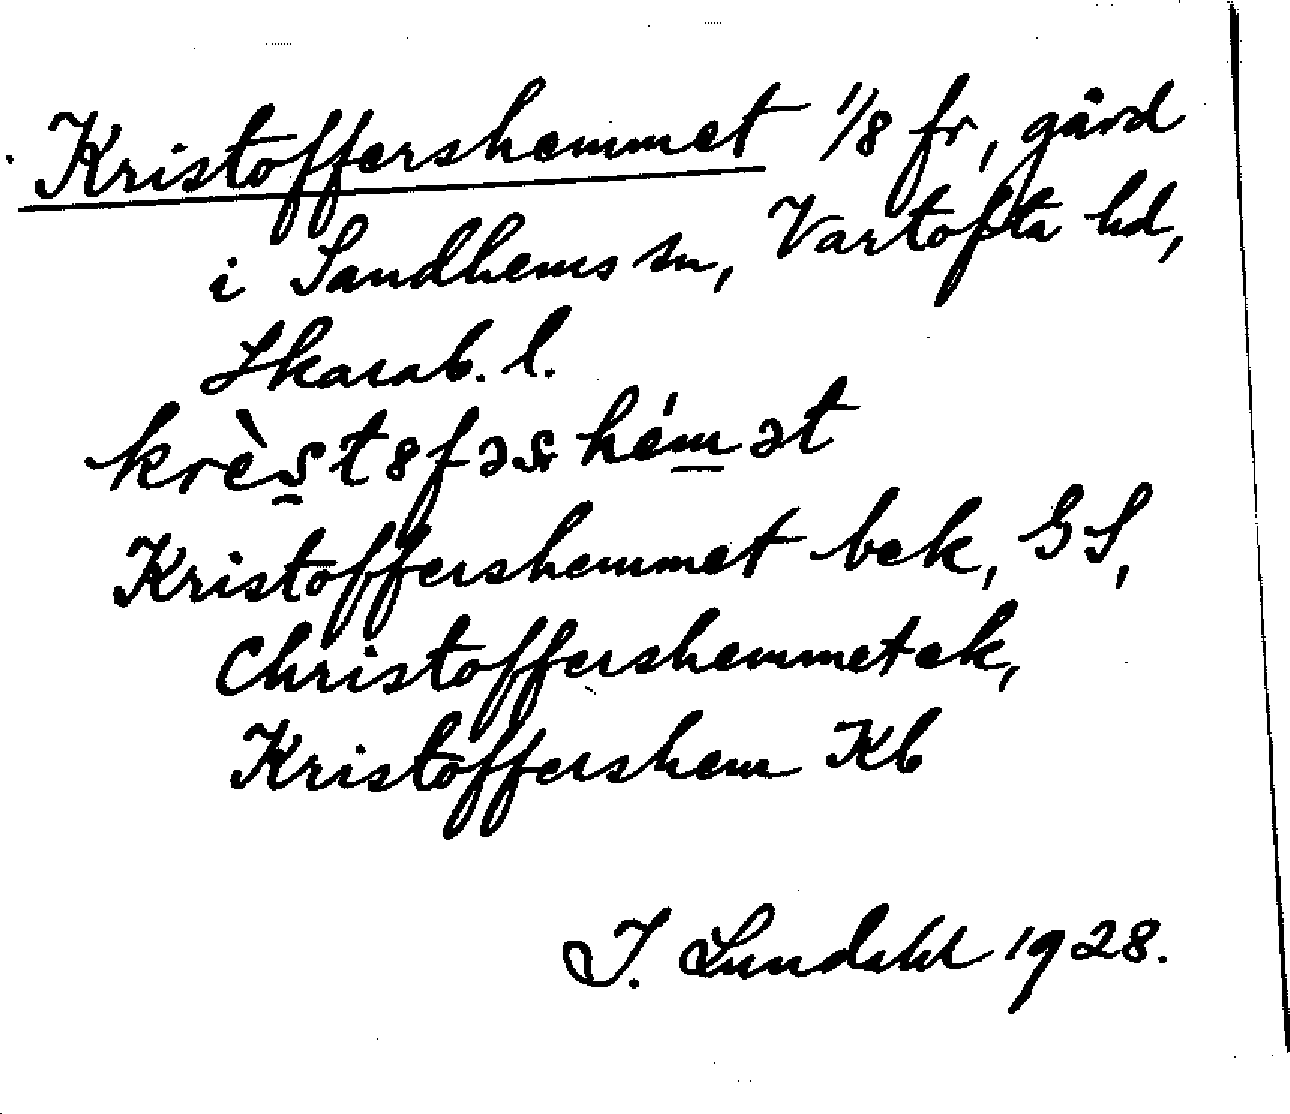 Kristoffershemmet 1/8 fr, gård
i Sandhems sn, Vartofta hd,
Skarab. l.
krès̠t8fəʂhém̠ət
Kristoffershemmet bek, GS,
Christoffershemmet ek,
Kristoffershem Kb
I. Lundahl 1928.